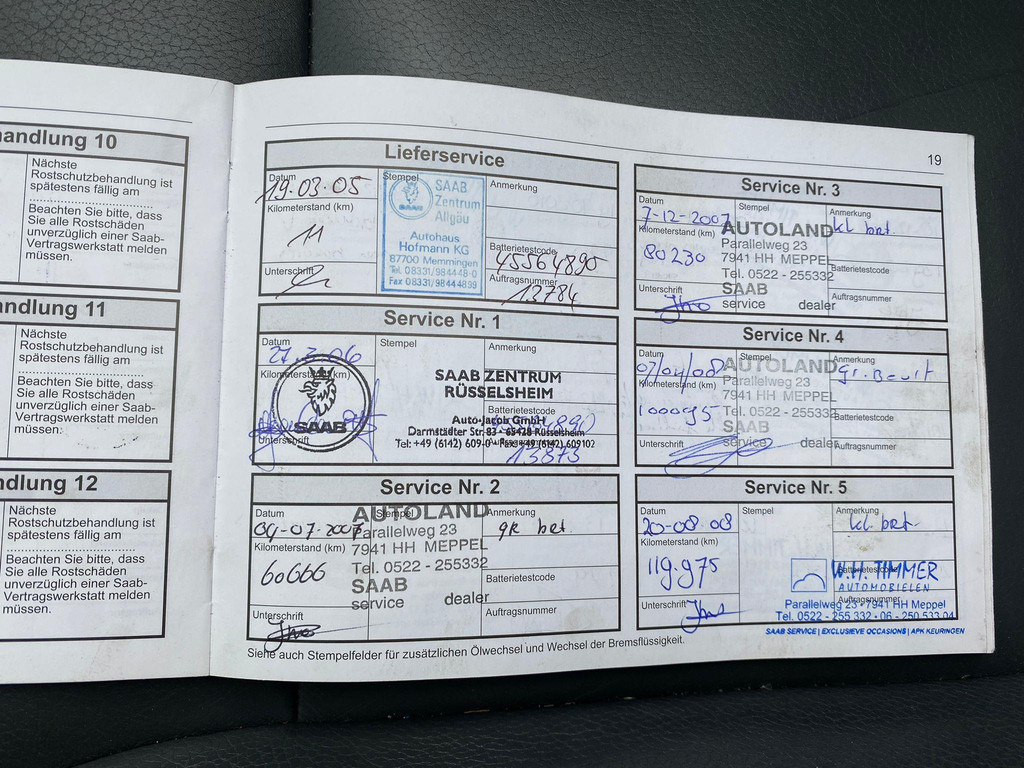 andlung 10
Nächste
Rostschutzbehandlung ist
spätestens fällig am
Beachten Sie bitte, dass
Sie alle Rostschäden
unverzüglich einer Saab-
Vertragswerkstatt melden
müssen.
ndlung 11
Nächste
Rostschutzbehandlung ist
spätestens fällig am
Beachten Sie bitte, dass
Sie alle Rostschäden
unverzüglich einer Saab-
Vertragswerkstatt melden
müssen:
dlung 12
Nächste
Rostschutzbehandlung ist
spätestens fällig am
Beachten Sie bitte, dass
Sie alle Rostschäden
unverzüglich einer Saab-
Vertragswerkstatt melden
müssen.
19
Lieferservice
Datum
19.03.05
Kilometerstand (km)
11
Unterschrift
Stempel
SAAB
Zentrum
Allgäu
Autohaus
Hofmann KG
87700 Memmingen
Tel. 08331/984448-0
Fax 08331/98444899
Anmerkung
Batterietestcode
45564890
Auftragsnummer
13784
Service Nr. 1
Datum
27.3.06
Kilometerstand (km)
SAAB
Unterschrift
Stempel
Anmerkung
SAAB ZENTRUM
RÜSSELSHEIM
Batterietestcode
Auto-Jacob GmbH
Darmstädter Str. 83 · 65428 Rüsselsheim
Tel: +49 (6142) 609-0 · Fax: +49 (6142) 609102
Auftragsnummer
13873
Service Nr. 2
Datum
04-07-2007
Kilometerstand (km)
60666
Unterschrift
Stempel
AUTOLAND
Parallelweg 23
7941 HH MEPPEL
Tel. 0522 - 255332
SAAB
service dealer
Anmerkung
gr bet.
Batterietestcode
Auftragsnummer
Service Nr. 3
Datum
7-12-2007
Kilometerstand (km)
80230
Unterschrift
Stempel
AUTOLAND
Parallelweg 23
7941 HH MEPPEL
Tel. 0522 - 255332
SAAB
service dealer
Anmerkung
kl bet.
Batterietestcode
Auftragsnummer
Service Nr. 4
Datum
07/04/08
Kilometerstand (km)
100095
Unterschrift
Stempel
AUTOLAND
Parallelweg 23
7941 HH MEPPEL
Tel. 0522 - 255332
SAAB
service dealer
Anmerkung
Batterietestcode
Auftragsnummer
Service Nr. 5
Datum
20-08-08
Kilometerstand (km)
119.975
Unterschrift
Stempel
Anmerkung
kl bet.
Batterietestcode
W.H. TIMMER
AUTOMOBIELEN
Auftragsnummer
Parallelweg 23 - 7941 HH Meppel
Tel. 0522 - 255 332 - 06 - 250 533 04
SAAB SERVICE | EXCLUSIEVE OCCASIONS | APK KEURINGEN
Siehe auch Stempelfelder für zusätzlichen Ölwechsel und Wechsel der Bremsflüssigkeit.